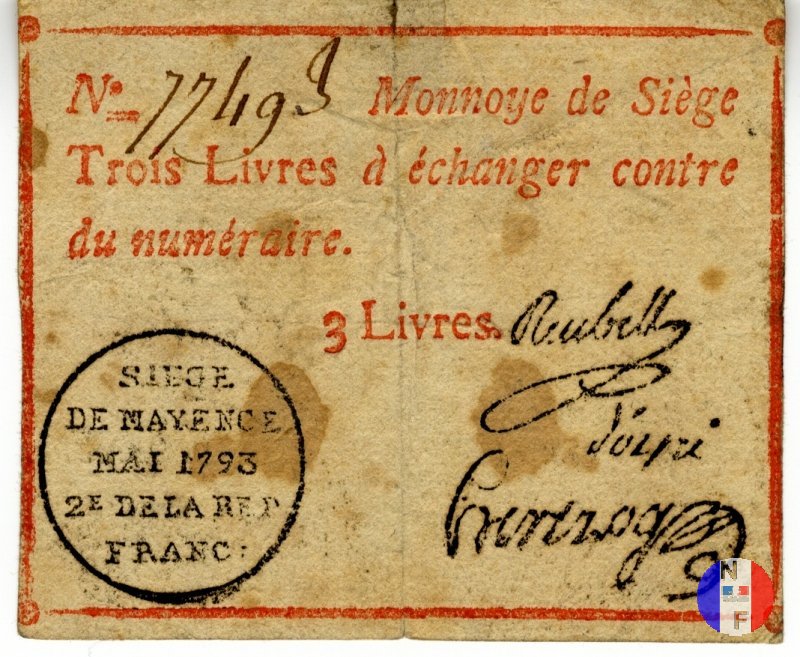 No 7749 Monnoye de Siège
Trois Livres à échanger contre
du numéraire.
3 Livres.
Reubell
SIEGE
DE MAYENCE
MAI 1793
2E DE LA REP
FRANC:
N
F